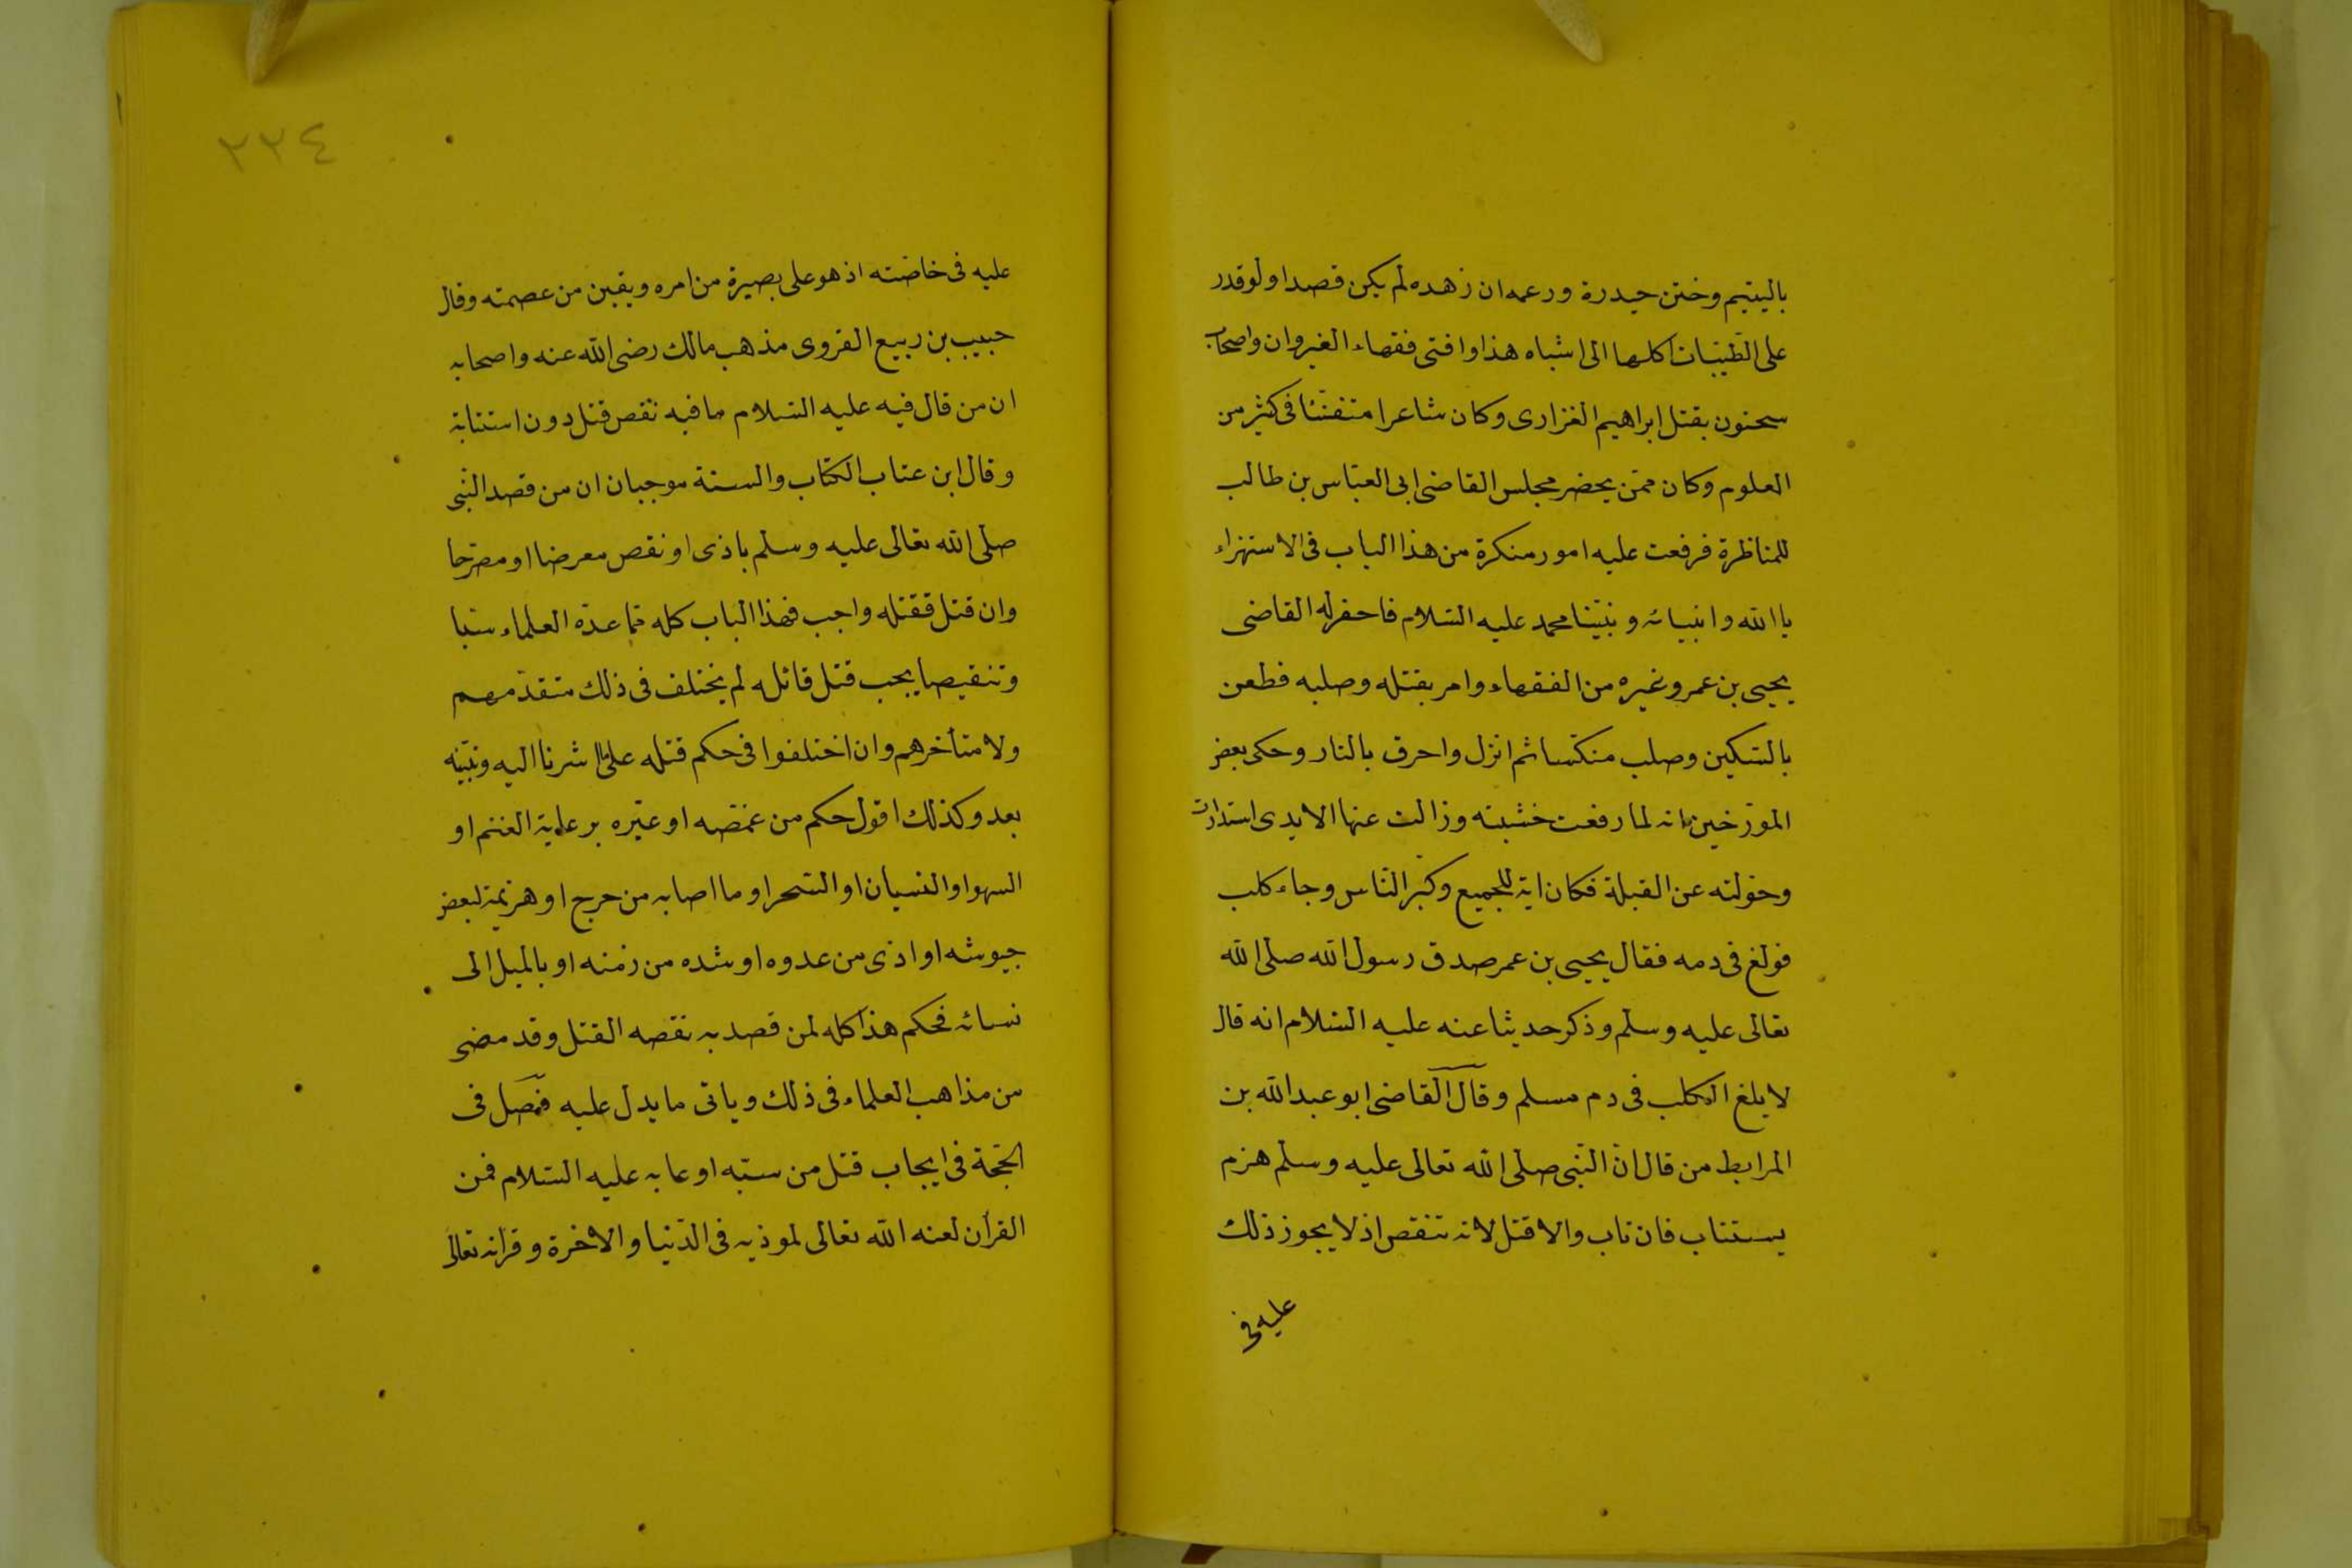 باليتيم وختن حيدرة ورعمه ان زهده لم يكن قصدا ولو قدر
على الطيّبات اكلها الى اشباه هذا وافتى فقهاء الغيروان واصحاب
سحنون بقتل ابراهيم الغزارى وكان شاعرا متفنّنا فى كثير من
العلوم وكان ممّن يحضر مجلس القاضى ابى العبّاس بن طالب
للمناظرة فرفعت عليه امور منكرة من هذا الباب فى الاستهزاء
باالله وانبيائه ونبيّنا محمد عليه السّلام فاحضر له القاضى
يحيى بن عمر وغيره من الفقهاء وامر بقتله وصلبه فطعن
بالسّكين وصلب منكّسا ثم انزل واحرق بالنار وحكى بعض
المورّخين انه لما رفعت خشبته وزالت عنها الايدى استدارت
وحوّلته عن القبلة فكان اية للجميع وكبّر النّاس وجاء كلب
فولغ فى دمه فقال يحيى بن عمر صدق رسول الله صلى الله
تعالى عليه وسلم وذكر حديثا عنه عليه السّلام انه قال
لا يلغ الكلب فى دم مسلم وقال القاضى ابو عبد الله بن
المرابط من قال انّ النّبى صلى الله تعالى عليه وسلم هزم
يستتاب فان تاب والا قتل لانه تنقص اذ لا يجوز ذلك
عليه فى
٢٢٤
عليه فى خاصّته اذ هو على بصيرة من امره ويقين من عصمته وقال
حبيب بن ربيع القروى مذهب مالك رضى الله عنه واصحابه
ان من قال فيه عليه السّلام ما فيه نقص قتل دون استتابة
وقال ابن عتاب الكتاب والسنة موجبان ان من قصد النّبى
صلى الله تعالى عليه وسلم باذى او نقص معرضا او مصرّحا
وان قتل فقتله واجب فهذا الباب كله ممّا عدّه العلماء سبّا
وتنقيصا يجب قتل قائله لم يختلف فى ذلك متقدّمهم
ولا متأخرهم وان اختلفوا فى حكم قتله على ما اشرنا اليه ونبيّنه
بعد وكذلك اقول حكم من غمّصه او عيّره برعاية الغنم او
السهو او النسيان او السّحر او ما اصابه من حرج او هزيمة لبعض
جيوشه او اذى من عدوه او شده من زمنه او بالميل الى
نسائه فحكم هذا كله لمن قصد به نقصه القتل وقد مضى
من مذاهب العلماء فى ذلك وياتى ما يدل عليه فصل فى
الحجّة فى ايجاب قتل من سبّه او عابه عليه السّلام فمن
القرأن لعنه الله تعالى لموذيه فى الدّنيا والاخرة وقرانه تعالى